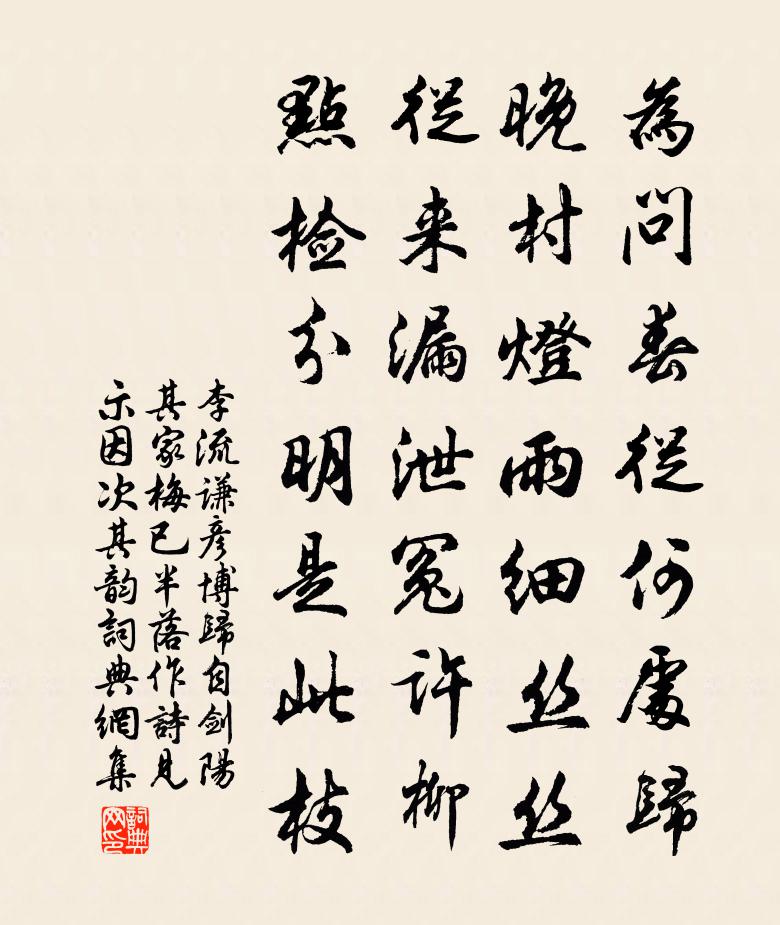 為問春從何處歸
晚村燈雨細丝丝
從来漏泄冤許柳
點檢分明是此枝
李流謙彦博歸自劍陽
其家梅已半落作詩見
示因次其韵詞典網集
詞典网印